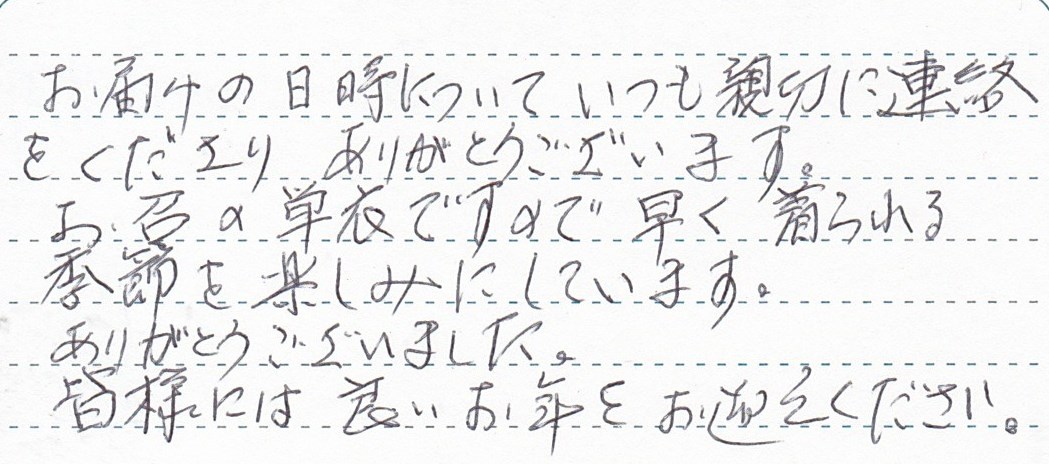 お届けの日時についていつも親切に連絡
をくださり ありがとうございます。
お召の単衣ですので早く着られる
季節を楽しみにしています。
ありがとうございました。
皆様には良いお年をお迎えください。